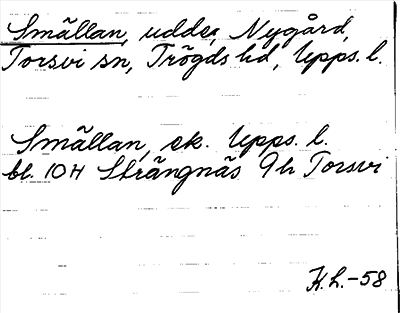 Smällan, udde, Nygård,
Torsvi sn, Trögds hd, Upps. l.
Smällan, ek. Upps. l.
bl. 10H Strängnäs 9h Torsvi
K.L.-58